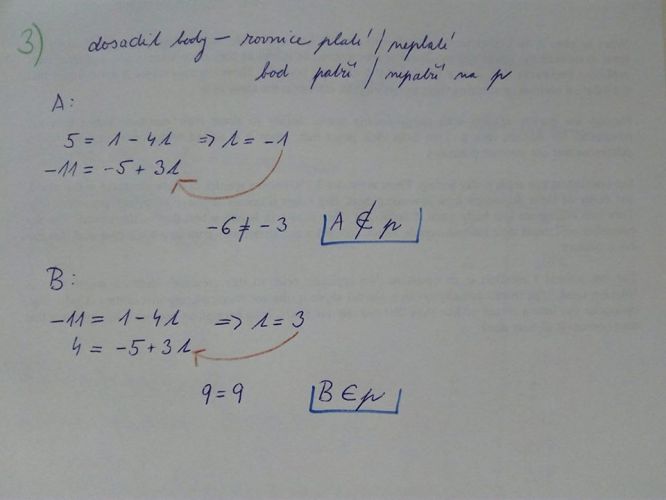 3) dosadit body – rovnice platí / neplatí
bod patří / nepatří na p
A:
5 = 1 - 4t ⇒ t = -1
-11 = -5 + 3t
-6 ≠ -3 A ∉ p
B:
-11 = 1 - 4t ⇒ t = 3
4 = -5 + 3t
9 = 9 B ∈ p